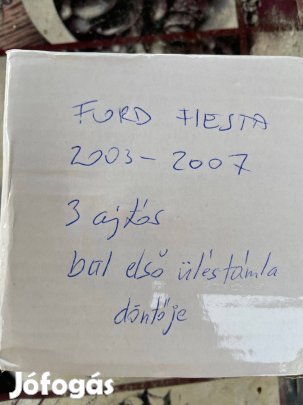 FORD FIESTA
2003-2007
3 ajtós
bal első üléstámla
döntője
Jófogás